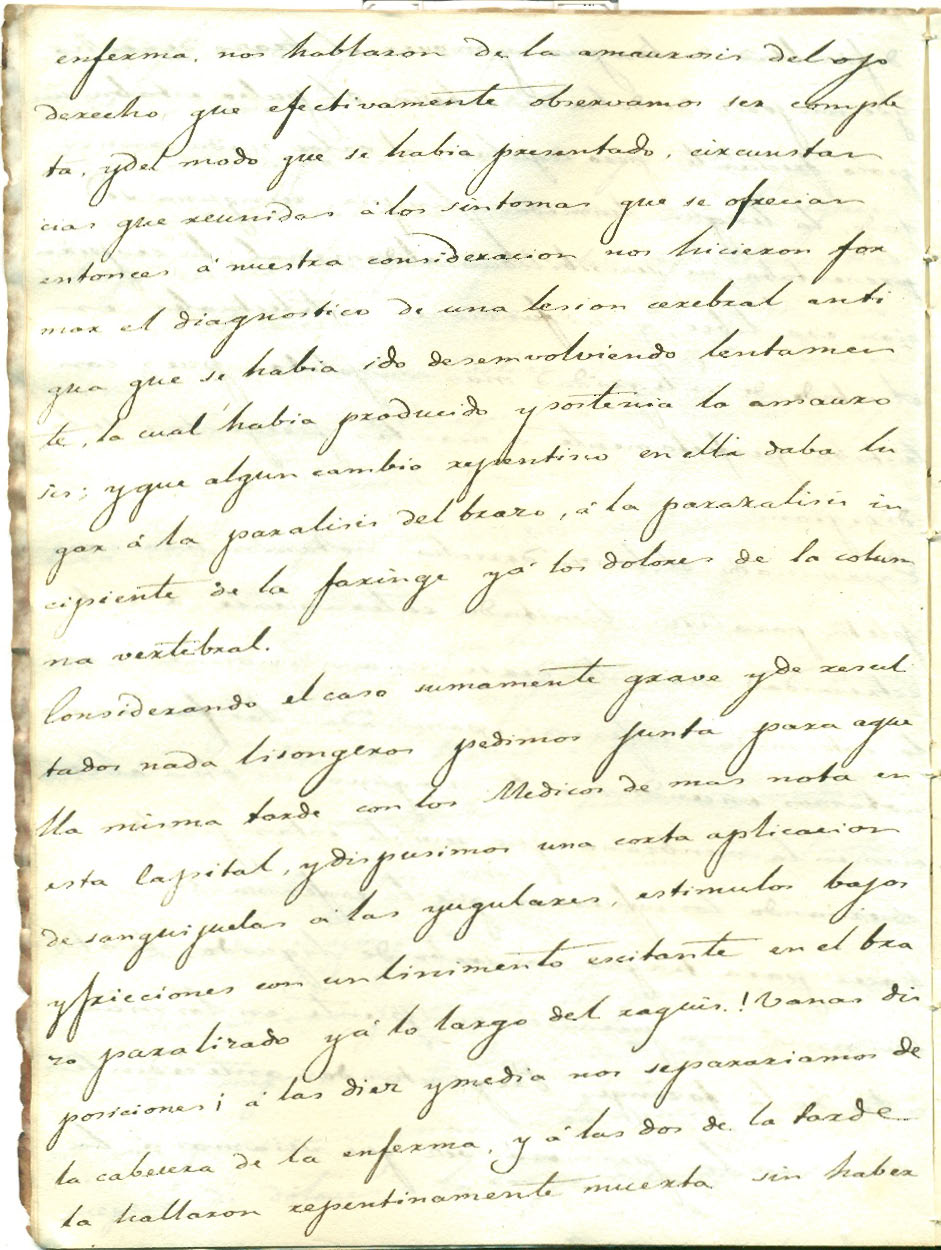 enferma, nos hablaron de la amaurosis del ojo
derecho, que efectivamente observamos ser comple
ta, y del modo que se habia presentado, circunstan
cias que reunidas á los sintomas que se ofrecian
entonces á nuestra consideracion nos hicieron for
mar el diagnostico de una lesion cerebral anti
gua que se habia ido desemvolviendo lentamen
te, la cual habia producido y sostenia la amauro
sis; y que algun cambio repentino en ella daba lu
gar á la paralisis del brazo, á la pararalisis in
cipiente de la faringe y á los dolores de la colum
na vertebral.
Considerando el caso sumamente grave y de resul
tados nada lisongeros pedimos junta para aque
lla misma tarde con los Medicos de mas nota en
esta Capital, y dispusimos una corta aplicacion
de sanguijuelas á las yugulares, estimulos bajos
y fricciones con un linimento escitante en el bra
zo paralizado y á lo largo del raquis. ! Vanas dis
posiciones ¡ á las diez y media nos separariamos de
la cabezera de la enferma, y á las dos de la tarde
la hallaron repentinamente muerta sin haber